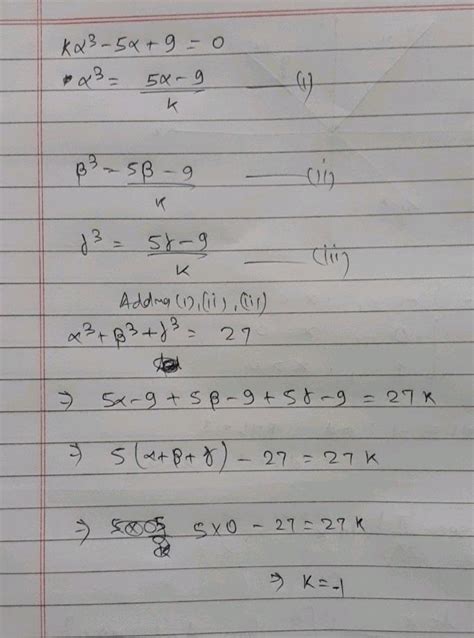 kα³ - 5α + 9 = 0
α³ = (5α - 9)/k —— (i)
β³ = (5β - 9)/k —— (ii)
γ³ = (5γ - 9)/k —— (iii)
Adding (i), (ii), (iii)
α³ + β³ + γ³ = 27
⇒ 5α - 9 + 5β - 9 + 5γ - 9 = 27k
⇒ 5(α + β + γ) - 27 = 27k
⇒ 5×0 - 27 = 27k
⇒ k = -1